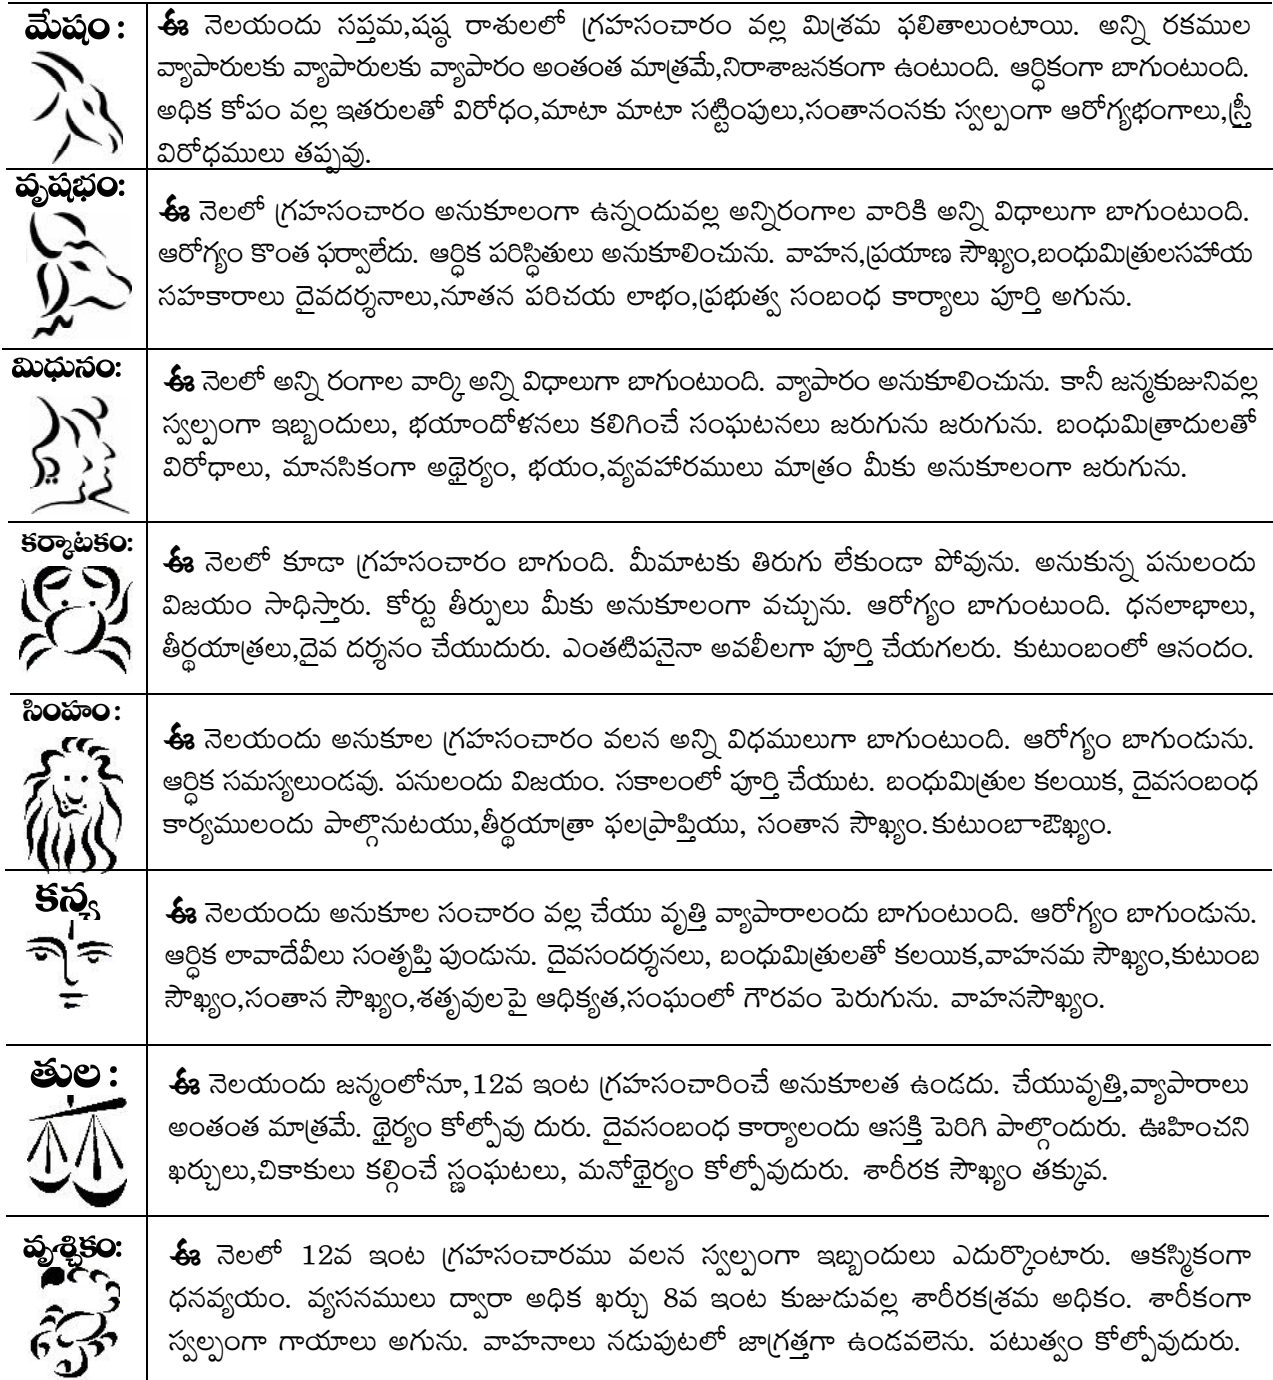 మేషం :
ఈ నెలయందు సప్తమ,షష్ఠ రాశులలో గ్రహసంచారం వల్ల మిశ్రమ ఫలితాలుంటాయి. అన్ని రకముల
వ్యాపారులకు వ్యాపారులకు వ్యాపారం అంతంత మాత్రమే,నిరాశాజనకంగా ఉంటుంది. ఆర్థికంగా బాగుంటుంది.
అధిక కోపం వల్ల ఇతరులతో విరోధం,మాటా మాటా సట్టింపులు,సంతానంనకు స్వల్పంగా ఆరోగ్యభంగాలు,స్త్రీ
విరోధములు తప్పవు.
వృషభం:
ఈ నెలలో గ్రహసంచారం అనుకూలంగా ఉన్నందువల్ల అన్నిరంగాల వారికి అన్ని విధాలుగా బాగుంటుంది.
ఆరోగ్యం కొంత ఫర్వాలేదు. ఆర్థిక పరిస్థితులు అనుకూలించును. వాహన,ప్రయాణ సౌఖ్యం,బంధుమిత్రులసహాయ
సహకారాలు దైవదర్శనాలు,నూతన పరిచయ లాభం,ప్రభుత్వ సంబంధ కార్యాలు పూర్తి అగును.
మిధునం:
ఈ నెలలో అన్ని రంగాల వార్కి అన్ని విధాలుగా బాగుంటుంది. వ్యాపారం అనుకూలించును. కానీ జన్మకుజునివల్ల
స్వల్పంగా ఇబ్బందులు, భయాందోళనలు కలిగించే సంఘటనలు జరుగును జరుగును. బంధుమిత్రాదులతో
విరోధాలు, మానసికంగా అథైర్యం, భయం,వ్యవహారములు మాత్రం మీకు అనుకూలంగా జరుగును.
కర్కాటకం:
ఈ నెలలో కూడా గ్రహసంచారం బాగుంది. మీమాటకు తిరుగు లేకుండా పోవును. అనుకున్న పనులందు
విజయం సాధిస్తారు. కోర్టు తీర్పులు మీకు అనుకూలంగా వచ్చును. ఆరోగ్యం బాగుంటుంది. ధనలాభాలు,
తీర్థయాత్రలు,దైవ దర్శనం చేయుదురు. ఎంతటిపనైనా అవలీలగా పూర్తి చేయగలరు. కుటుంబంలో ఆనందం.
సింహం :
ఈ నెలయందు అనుకూల గ్రహసంచారం వలన అన్ని విధములుగా బాగుంటుంది. ఆరోగ్యం బాగుండును.
ఆర్థిక సమస్యలుండవు. పనులందు విజయం. సకాలంలో పూర్తి చేయుట. బంధుమిత్రుల కలయిక, దైవసంబంధ
కార్యములందు పాల్గొనుటయు,తీర్థయాత్రా ఫలప్రాప్తియు, సంతాన సౌఖ్యం.కుటుంబాఔఖ్యం.
కన్య
ఈ నెలయందు అనుకూల సంచారం వల్ల చేయు వృత్తి వ్యాపారాలందు బాగుంటుంది. ఆరోగ్యం బాగుండును.
ఆర్థిక లావాదేవీలు సంతృప్తి పుండును. దైవసందర్శనలు, బంధుమిత్రులతో కలయిక,వాహనమ సౌఖ్యం,కుటుంబ
సౌఖ్యం,సంతాన సౌఖ్యం,శతృవులపై ఆధిక్యత,సంఘంలో గౌరవం పెరుగును. వాహనసౌఖ్యం.
తుల :
ఈ నెలయందు జన్మంలోనూ,12వ ఇంట గ్రహసంచారించే అనుకూలత ఉండదు. చేయువృత్తి,వ్యాపారాలు
అంతంత మాత్రమే. థైర్యం కోల్పోవు దురు. దైవసంబంధ కార్యాలందు ఆసక్తి పెరిగి పాల్గొందురు. ఊహించని
ఖర్చులు,చికాకులు కల్గించే స్ణంఘటలు, మనోథైర్యం కోల్పోవుదురు. శారీరక సౌఖ్యం తక్కువ.
వృశ్చికం:
ఈ నెలలో 12వ ఇంట గ్రహసంచారము వలన స్వల్పంగా ఇబ్బందులు ఎదుర్కొంటారు. ఆకస్మికంగా
ధనవ్యయం. వ్యసనములు ద్వారా అధిక ఖర్చు 8వ ఇంట కుజుడువల్ల శారీరకశ్రమ అధికం. శారీకంగా
స్వల్పంగా గాయాలు అగును. వాహనాలు నడుపుటలో జాగ్రత్తగా ఉండవలెను. పటుత్వం కోల్పోవుదురు.